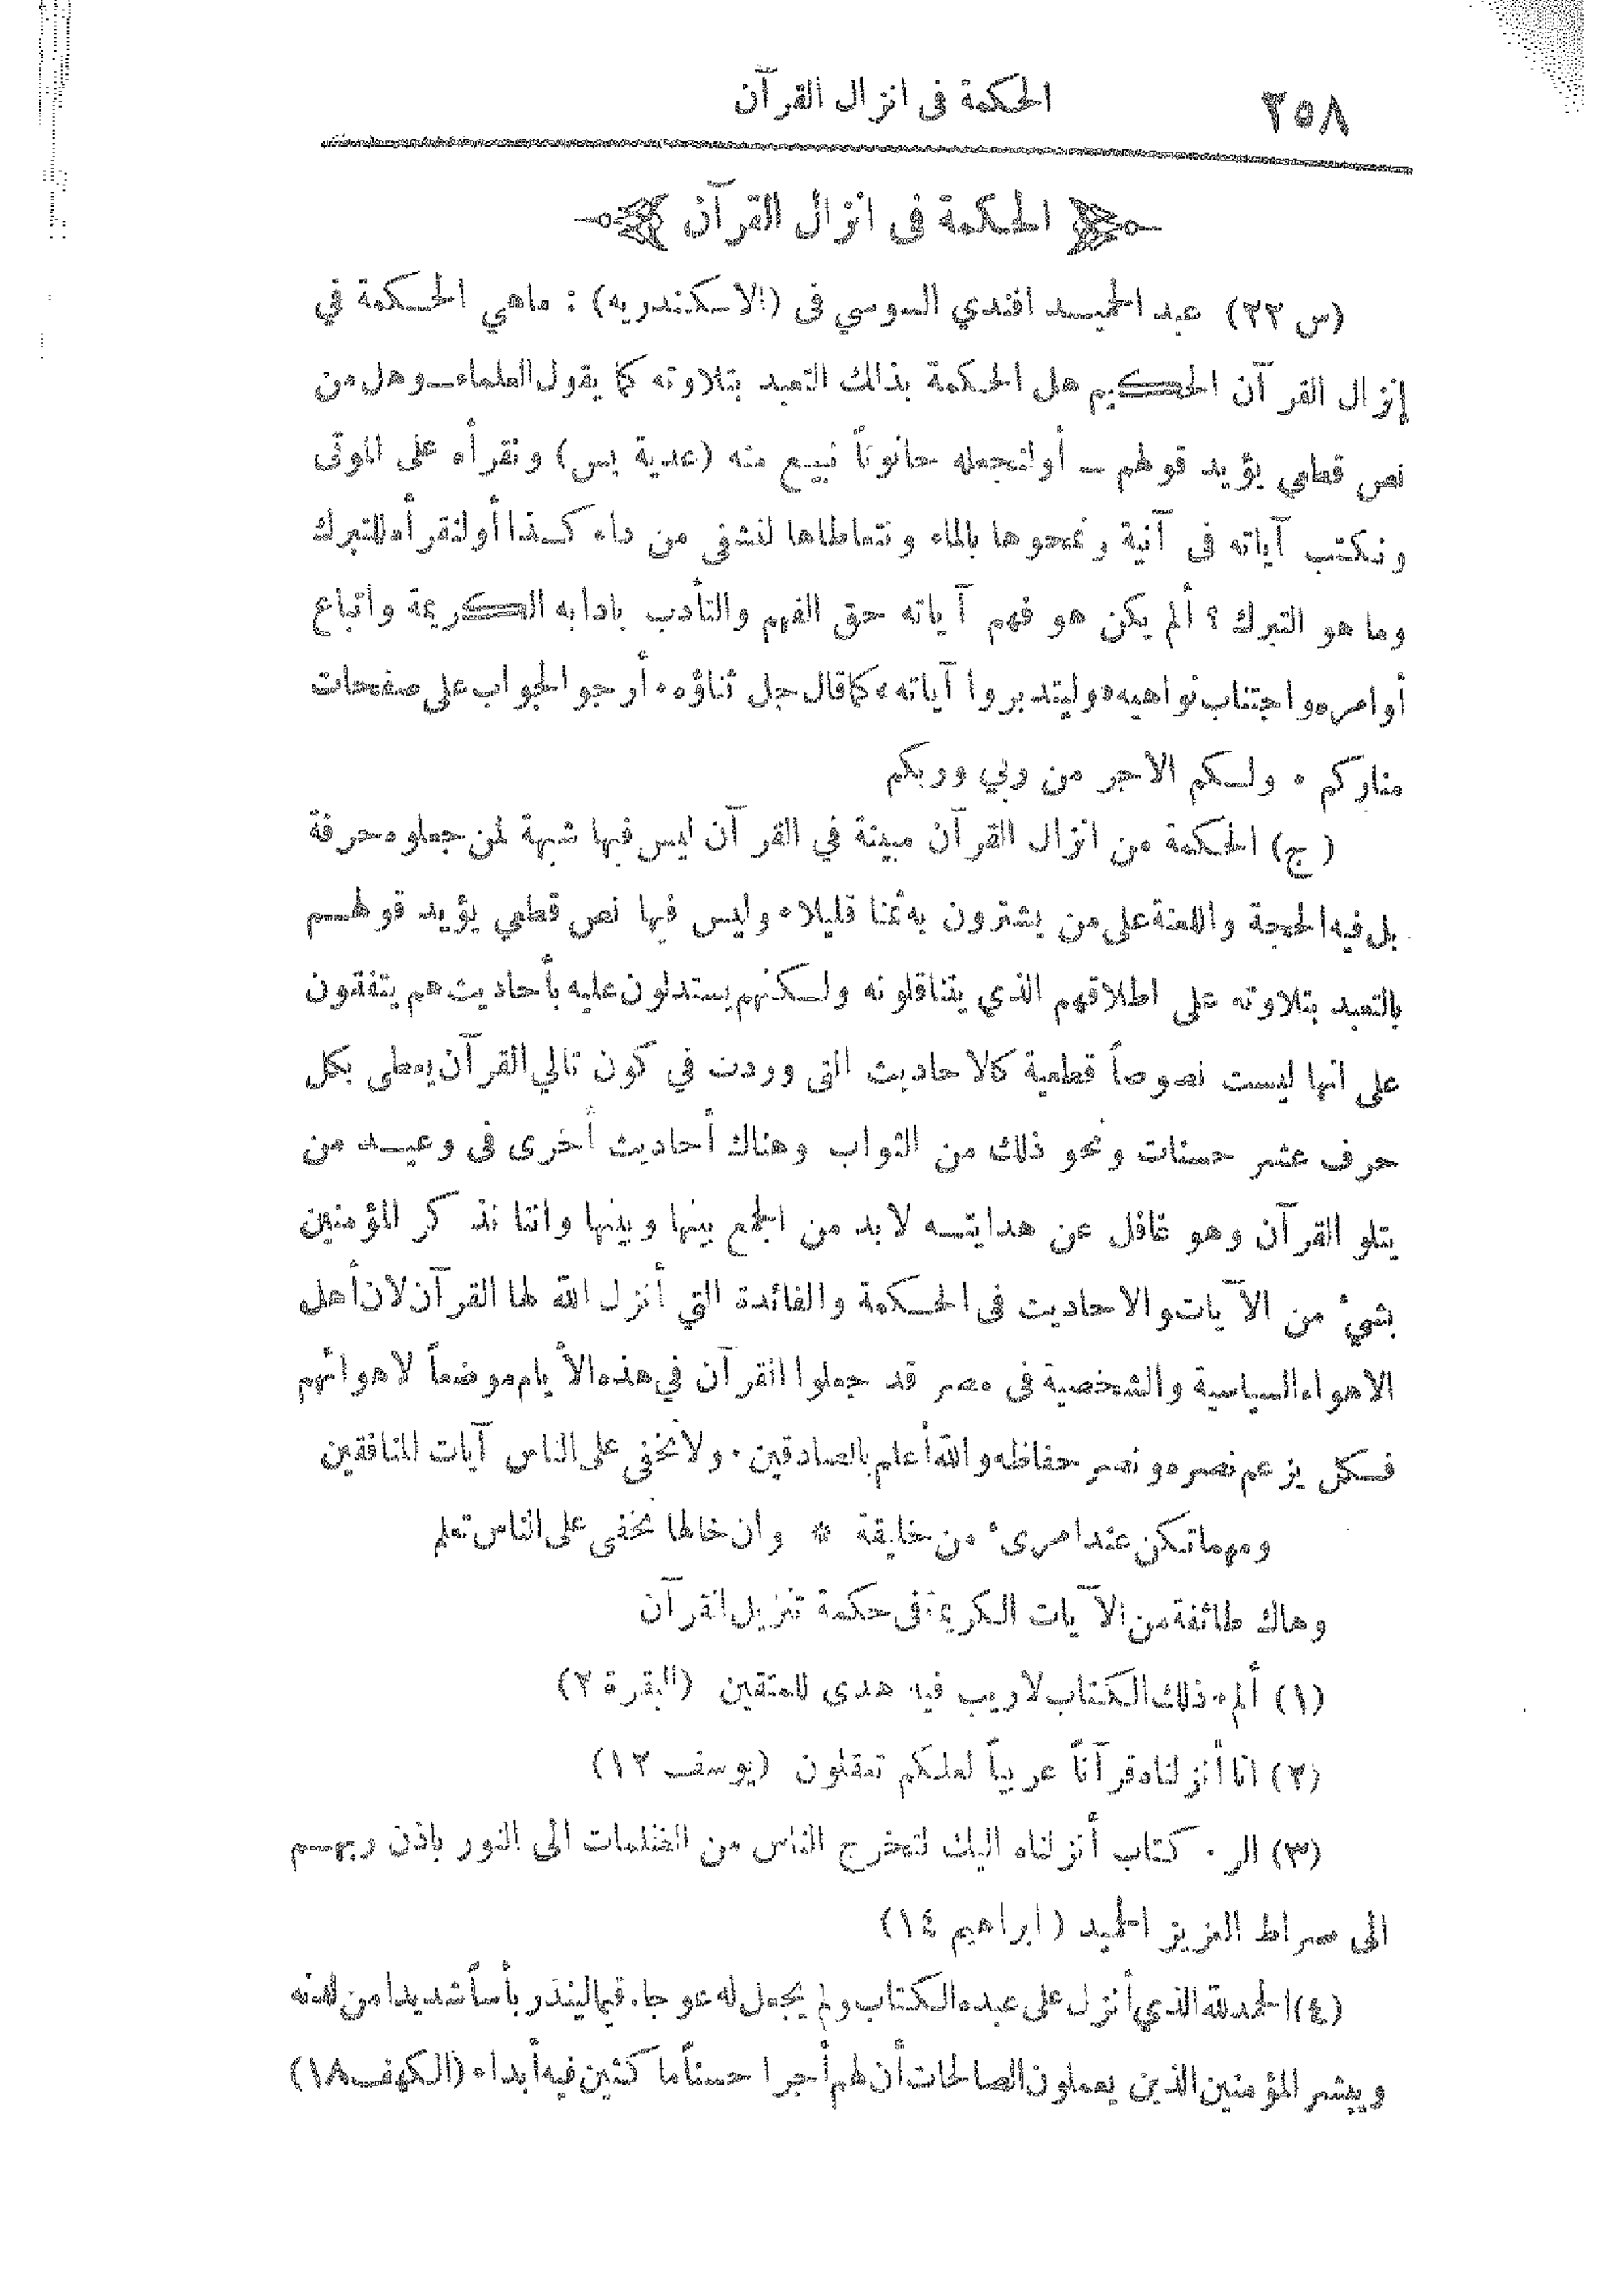 ٢٥٨
الحكمة فى انزال القرآن
الحكمة فى انزال القرآن
(س ٢٢) عبد الحميد افندي السوسي فى (الاسكندريه) : ماهي الحكمة في
إنزال القرآن الحكيم هل الحكمة بذلك التعبد بتلاوته كما يقول العلماء ــ وهل من
نص قطعي يؤيد قولهم ــ أو لنجعله حانوتاً نبيع منه (عدية يس) ونقرأه على الموتى
ونكتب آياته فى آنية ونمحوها بالماء ونتعاطاها لنشفى من داء كذا أو لنقرأه للتبرك
وما هو التبرك ؟ ألم يكن هو فهم آياته حق الفهم والتأدب بادابه الكريمة واتباع
أوامره واجتناب نواهيه «وليتدبروا آياته» كما قال جل ثناؤه . أرجو الجواب على صفحات
مناركم . ولكم الاجر من ربي وربكم
(ج) الحكمة من انزال القرآن مبينة في القرآن ليس فيها شبهة لمن جعلوه حرفة
بل فيه الحجة واللعنة على من يشترون به ثمنا قليلا . وليس فيها نص قطعي يؤيد قولهم
بالتعبد بتلاوته على اطلاقهم الذي يتناقلونه ولكنهم يستدلون عليه بأحاديث هم يتفقون
على انها ليست نصوصاً قطعية كالاحاديث التى وردت في كون تالي القرآن يعطى بكل
حرف عشر حسنات ونحو ذلك من الثواب وهناك أحاديث أخرى فى وعيد من
يتلو القرآن وهو غافل عن هدايته لا بد من الجمع بينها وبينها واننا نذكر المؤمنين
بشيء من الآيات والاحاديث فى الحكمة والفائدة التي أنزل الله لها القرآن لان أهل
الاهواء السياسية والشخصية فى مصر قد جعلوا القرآن في هذه الأيام موضعاً لاهوائهم
فكل يزعم نصره ونصر حفاظه والله أعلم بالصادقين . ولا تخفى على الناس آيات المنافقين
ومهما تكن عند امرىء من خليقة * وان خالها تخفى على الناس تعلم
وهاك طائفة من الآيات الكريمة فى حكمة تنزيل القرآن
(١) ألم . ذلك الكتاب لا ريب فيه هدى للمتقين (البقرة ٢)
(٢) انا أنزلناه قرآناً عربياً لعلكم تعقلون (يوسف ١٢)
(٣) الر . كتاب أنزلناه اليك لتخرج الناس من الظلمات الى النور باذن ربهم
الى صراط العزيز الحميد (ابراهيم ١٤)
(٤) الحمد لله الذي أنزل على عبده الكتاب ولم يجعل له عوجا . قيما لينذر بأساً شديدا من لدنه
ويبشر المؤمنين الذين يعملون الصالحات أن لهم أجرا حسناً ماكثين فيه أبدا . (الكهف ١٨)